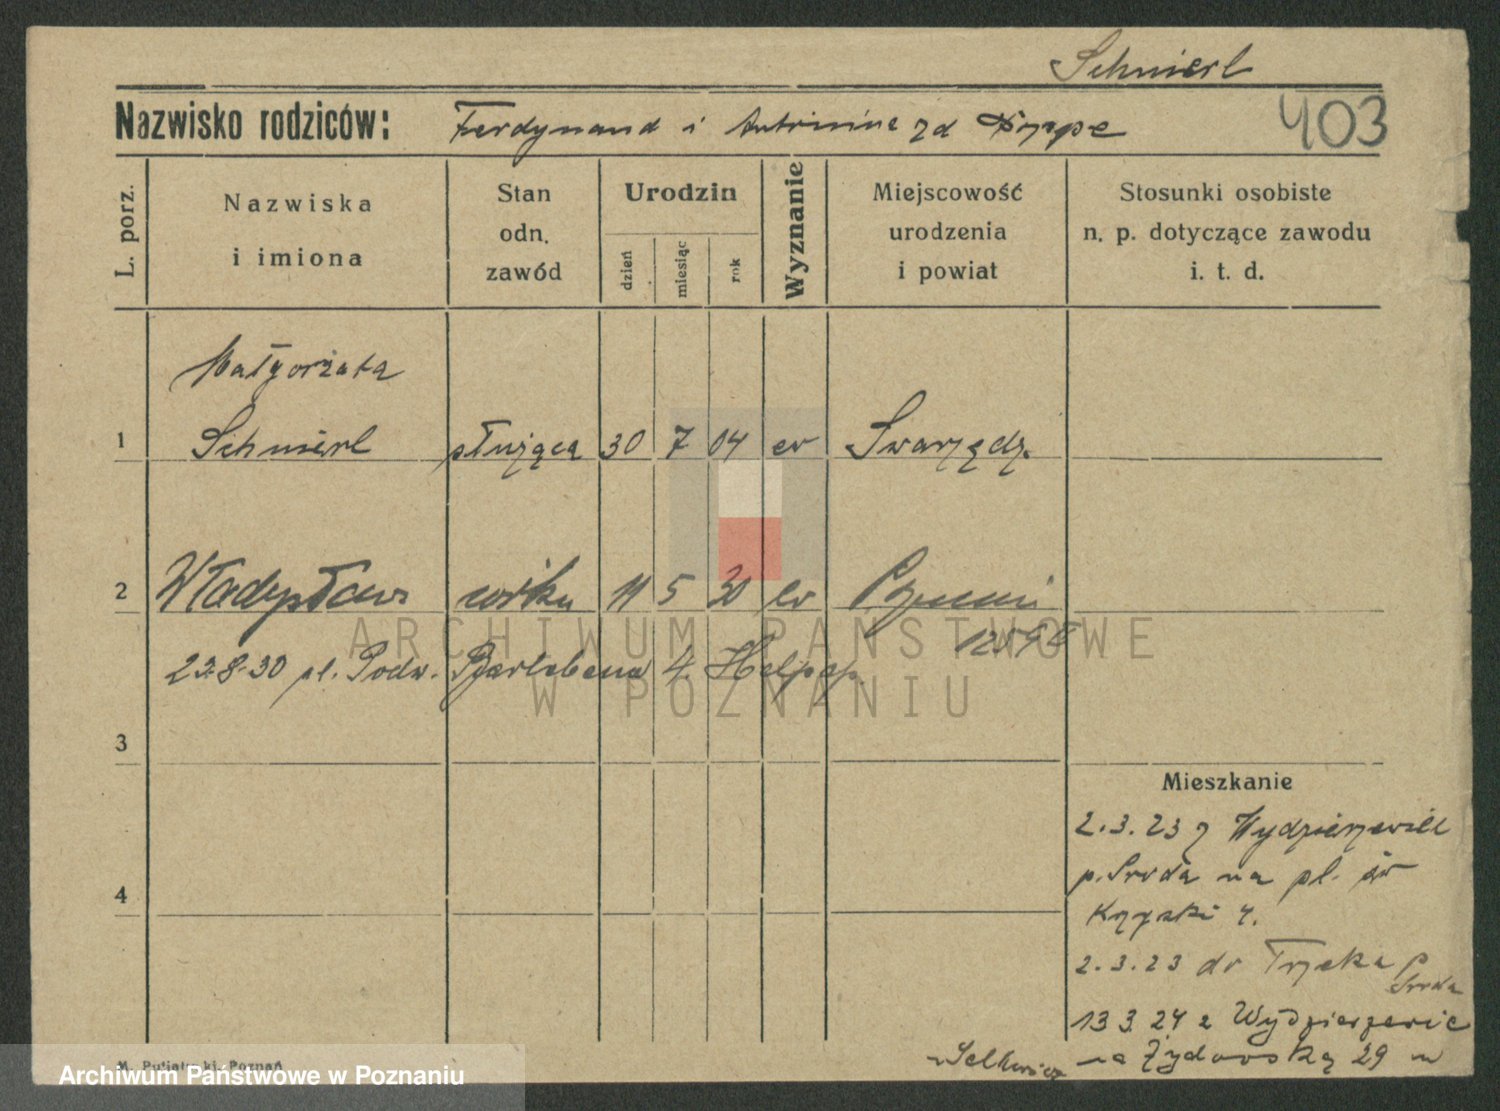 Schmierl
Nazwisko rodziców: Ferdynand i Antonina zd Poppe
403
L. porz.
Nazwiska
i imiona
Stan
odn.
zawód
Urodzin
dzień
miesiąc
rok
Wyznanie
Miejscowość
urodzenia
i powiat
Stosunki osobiste
n. p. dotyczące zawodu
i. t. d.
Małgorżata
1 Schmierl służąca 30 7 04 ew Swarzędz.
2 Władysław 11 5 30 ew Poznań
23.8.30 pl. Podw. 4
3
4
Mieszkanie
2.3.23 z Wydzierzewic
p. Sroda na pl. św
Krzyski 4.
2.3.23 do Trzeka p
Sroda
13 3. 24 z Wydzierzewic
na Żydowską 29 u
M. Putiatycki, Poznań
ARCHIWUM PAŃSTWOWE
W POZNANIU
Archiwum Państwowe w Poznaniu